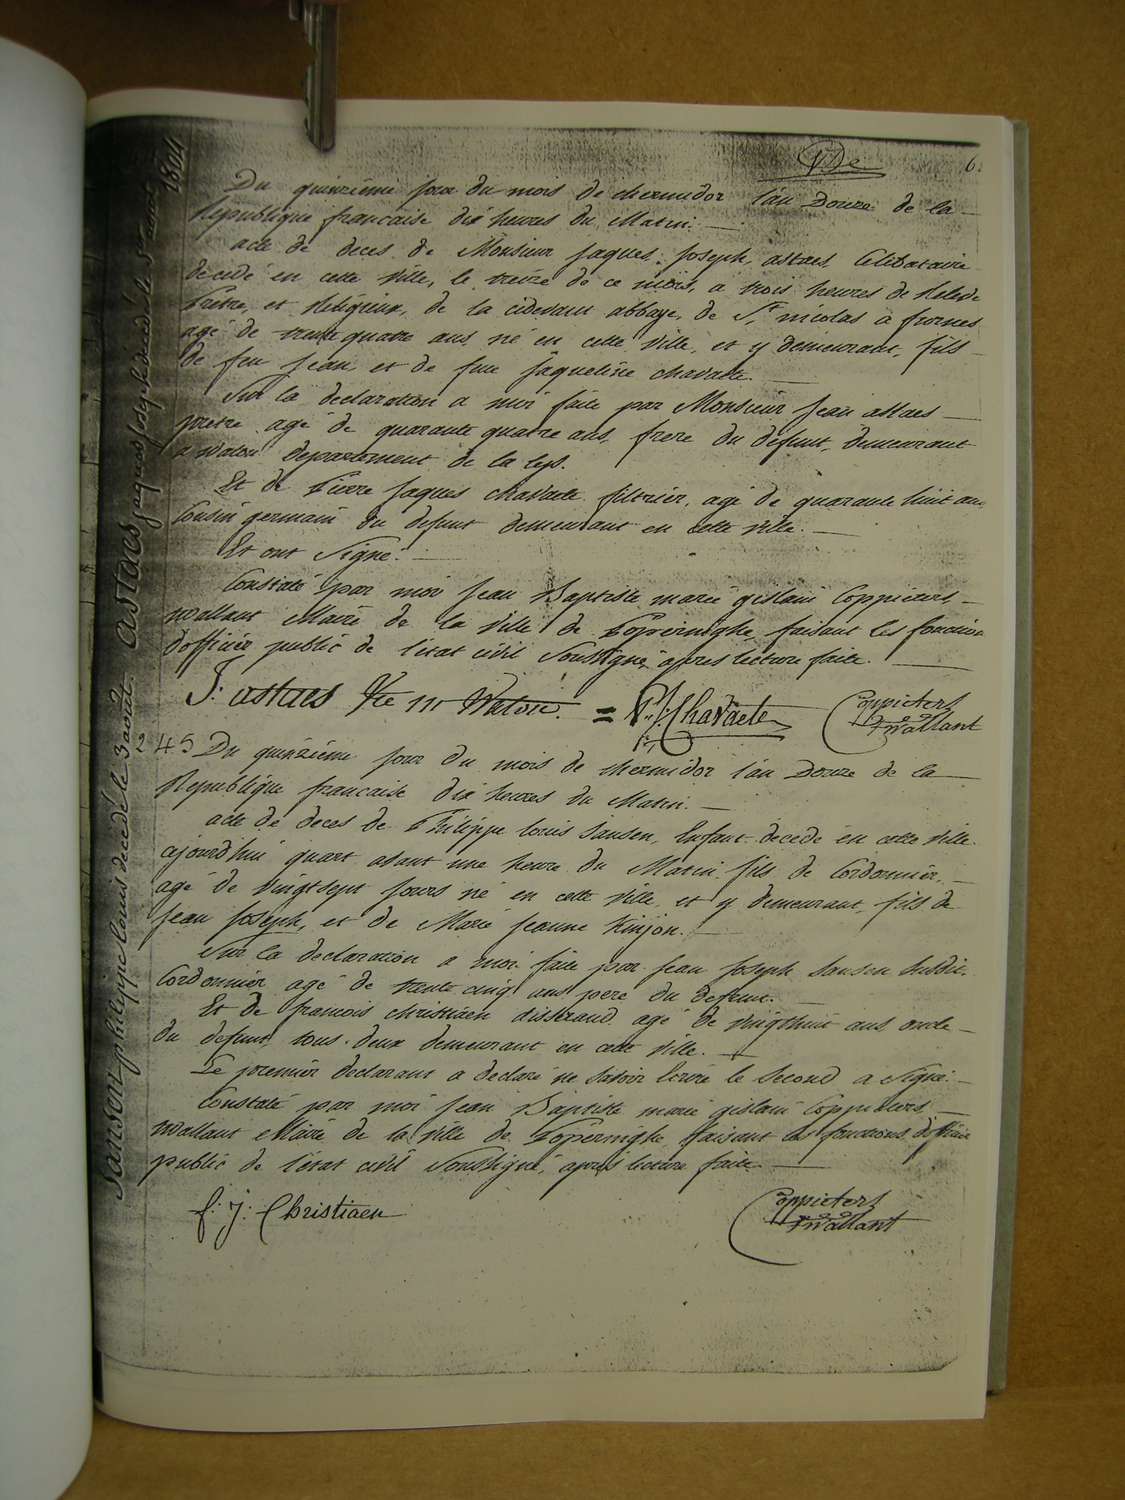 6.
1804
Du quinzième jour du mois de thermidor l'an Douze de la
Republique francaise dix heures du Matin.
acte de deces de Monsieur Jaques Joseph astaes, Celibataire
decedé en cette ville, le treize de ce mois, a trois heures de Relevé
Pretre, et Religieux, de la cidevant abbaye de St nicolas à furnes
agé de trente quatre ans, né en cette Ville, et y demeurant, fils
de feu Jean, et de feue Jaqueline chavaete.
Sur la declaration a moi faite par Monsieur Jean astaes
pretre agé de quarante quatre ans, frere du defunt, demeurant
a Watou departement de la Lys.
Et de Pierre Jaques chavaete agé de quarante huit ans
Cousin germain du defunt demeurant en cette ville.
Et ont Signé.
Constaté par moi Jean Baptiste marie gislain Coppieters
Wallant Maire de la Ville de Poperinghe, faisant les fonction
d'officier public de l'état civil Soussigné, apres lecture faite.
J: astaes Watou. = P: J: Chavaete Coppieters
Wallant
245 Du quinzième jour du mois de thermidor l'an Douze de la
Republique francaise dix heures du Matin.
acte de deces de Philippe Louis Sansen, Enfant decedé en cette ville
ajourdhui quart avant une heure du Matin, fils de Cordonnier,
agé de vingtsept jours né en cette ville, et y demeurant, fils de
Jean Joseph, et de Marie Jeanne Kinjon.
Sur la declaration a moi faite par Jean Joseph Sansen Susdit
Cordonnier agé de trente cinq ans pere du defunt.
Et de francois christiaen agé de vingthuit ans oncle
du defunt, tous deux demeurant en cette ville.
Le premier declarant a declaré ne savoir Ecrire le Second a Signé.
Constaté par moi Jean Baptiste marie gislain Coppieters
Wallant Maire de la Ville de Poperinghe, faisant les fonctions d'officier
public de l'état civil Soussigné, après lecture faite.
f: J: Christiaen Coppieters
Wallant
Astaes jaques joseph décédé le
Sansen philippe louis décédé le 3 août